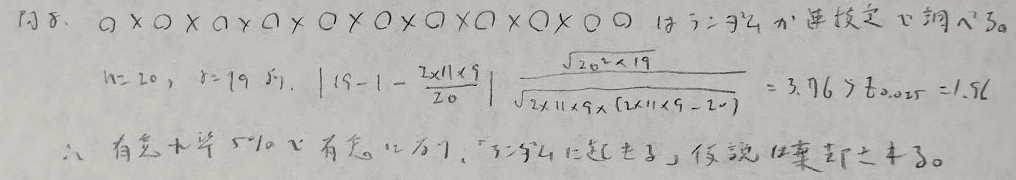 問8. ○×○×○×○×○×○×○×○×○×○○ はランダムか連検定で調べる。
n=20, r=19 より. |19-1-\frac{2×11×9}{20}| \frac{\sqrt{20^2×19}}{\sqrt{2×11×9×(2×11×9-20)}} = 3.76 > t_{0.025} = 1.96
∴ 有意水準5%で有意になり、「ランダムに起きる」仮説は棄却される。